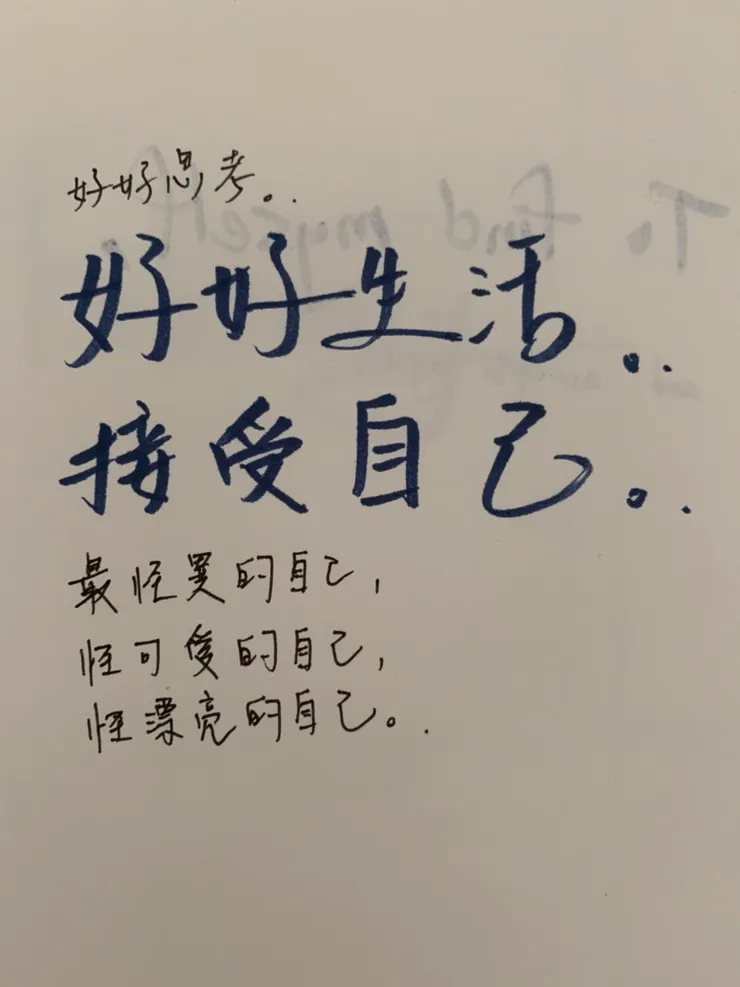 好好思考。.
好好生活。.
接受自己。.
最怪异的自己，
怪可爱的自己，
怪漂亮的自己。.
To find myself.